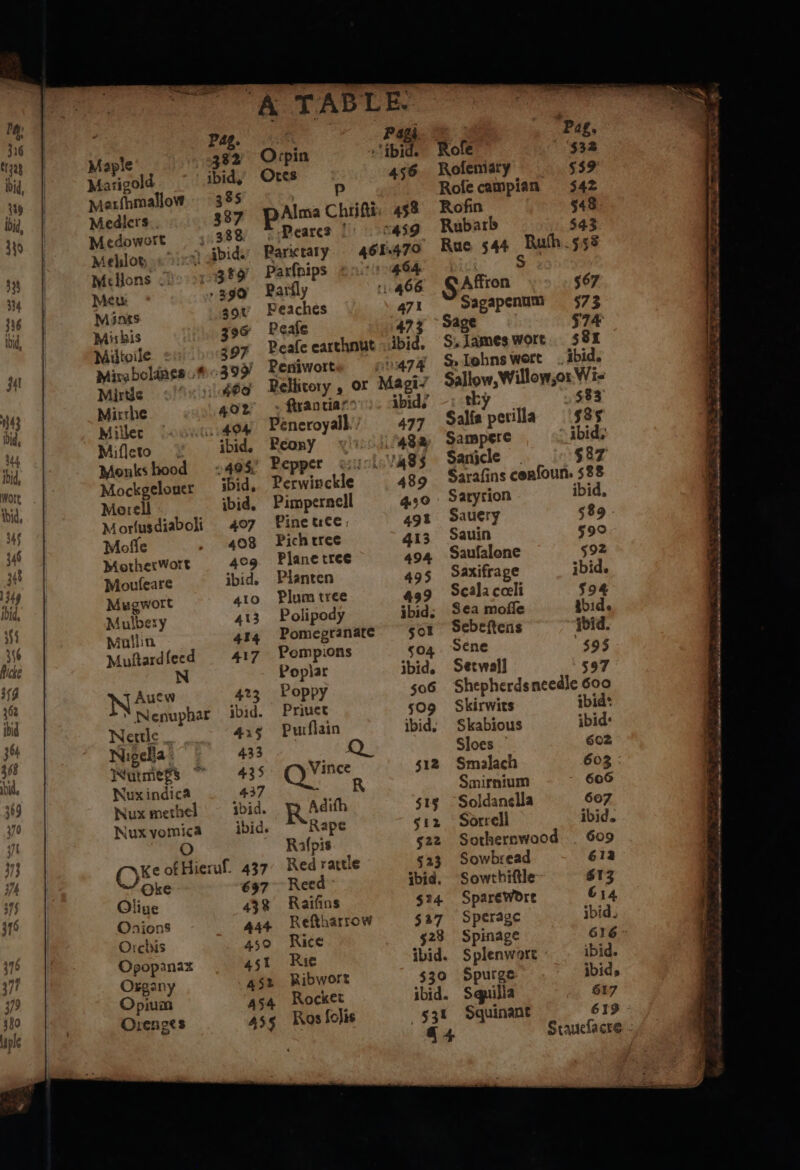 A TABLE.
Pag.
Maple 382
Marigold ibid,
Marſhmallow 385
Medlers 387
Medowort 388
Mehlot ibid.
Mellons 389
Meu 390
Mints 391
Misbis 396
Miltoile 397
Mirabolanes 399
Mirtle 400
Mirrhe 402
Millet 404
Miſleto ibid.
Monks hood 405
Mockgelouer ibid.
Morell ibid.
Morſusdiaboli 407
Moſſe 408
MotherWort 409
Mouſeare ibid.
Mugwort 410
Mulbery 413
Mullin 414
Muſtardſeed 417
N
NAuew 423
Nenuphar ibid.
Nettle 425
Nigella 433
Nutmegs 435
Nuxindica 437
Nux methel ibid.
Nuxvomica ibid.
O
OKe of Hieruſ. 437
Oke 697
Oliue 438
Onions 444
Orchis 450
Opopanax 451
Organy 452
Opium 454
Orenges 455
Pagi
Orpin ibid.
Otes 456
P
PAlma Chriſti 458
Peares 459
Parietary 461.470
Parſnips 464
Parſly 466
Peaches 471
Peaſe 473
Peaſe earthnut ibid.
Peniworte 474
Pellitory, or Magi-
ſtrantia ibid.
Peneroyall 477
Peony 482
Pepper 485
Perwinckle 489
Pimpernell 490
Pine tree, 491
Pich tree 413
Plane tree 494
Planten 495
Plum tree 499
Polipody ibid;
Pomegranate 501
Pompions 504
Poplar ibid.
Poppy 506
Priuet 509
Purſlain ibid;
Q
QVince 512
R
RAdiſh 515
Rape 512
Raſpis 522
Red rattle 523
Reed ibid.
Raiſins 524
Reſtharrow 527
Rice 528
Rie ibid.
Ribwort 530
Rocket ibid.
Ros ſolis 531
¶ 4
Pag.
Roſe 532
Roſemary 559
Roſe campian 542
Roſin 548
Rubarb 543
Rue 544 Ruſh 558
S
SAffron 567
Sagapenum 573
Sage 574
S. Iames wort 581
S. Iohns wort ibid.
Sallow, Willow, or Wi-
thy 583
Salſa perilla 585
Sampere ibid;
Sanicle 587
Saraſins conſoun. 588
Satyrion ibid.
Sauery 589
Sauin 590
Sauſalone 592
Saxifrage ibid.
Scala cœli 594
Sea moſſe ibid.
Sebeſtens ibid.
Sene 595
Setwall 597
Shepherdsneedle 600
Skirwits ibid:
Skabious ibid:
Sloes 602
Smalach 603
Smirnium 606
Soldanella 607
Sorrell ibid.
Sothernwood 609
Sowbread 612
Sowthiſtle 613
SpareWort 614
Sperage ibid.
Spinage 616
Splenwort ibid.
Spurge ibid,
Squilla 617
Squinant 619
Staueſacre